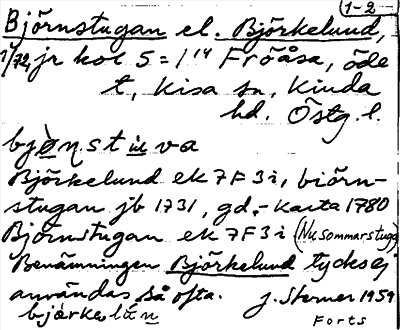 1-2
Björnstugan el. Björkelund,
1/72, jr hoc 5=1/14 Fröåsa, öde
t, Kisa sn, Kinda
hd. Östg. l.
bjø̀ṇstuva
Björkelund ek 7F3i, biörn-
stugan jb 1731, gd, - karta 1780
Björnstugan ek 7F3i (Nu sommarstuga)
Benämningen Björkelund tycks ej
användas så ofta. J. Sterner 1959
bjørkelùn
Forts